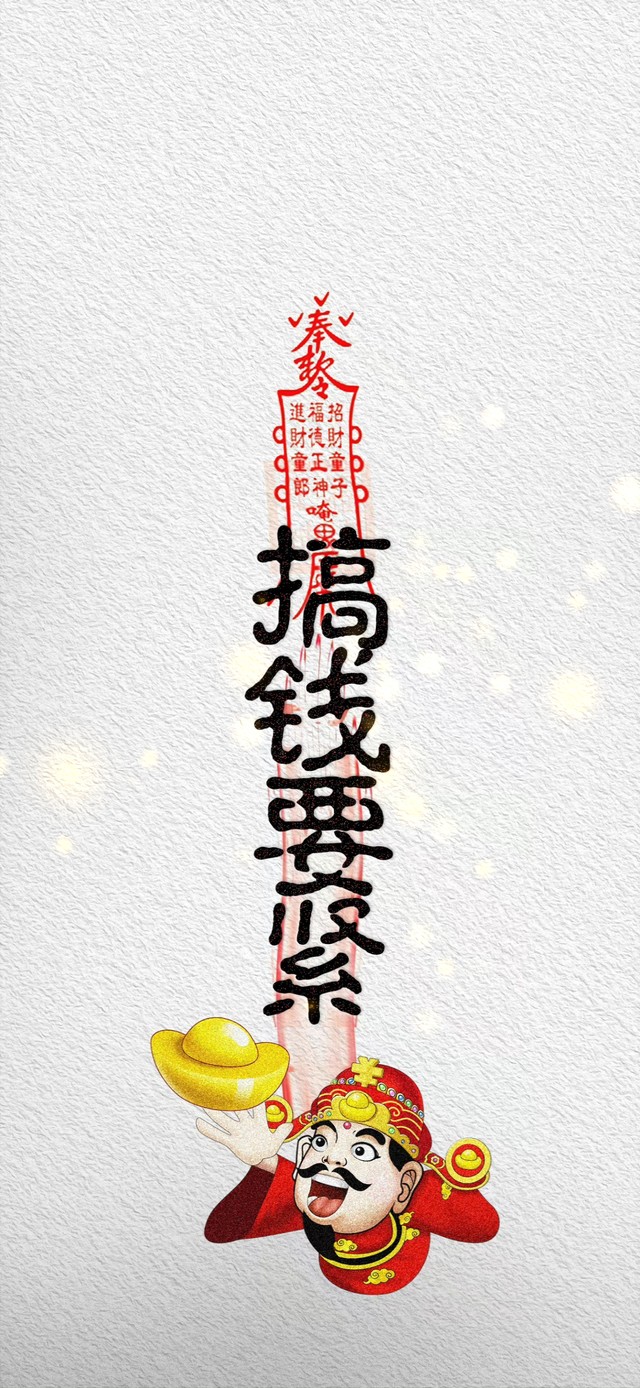 奉
敕令
招財童子
福德正神
進財童郎
唵
搞钱要紧